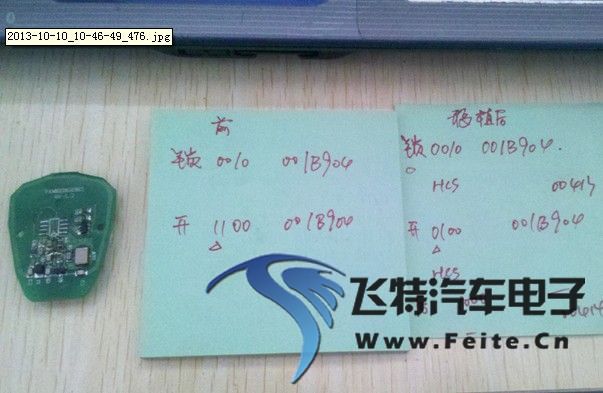 2013-10-10_10-46-49_476.jpg
前
锁 0010 001B904
开 1100 001B904
移植后
锁 0010 001B904.
HCS
开 0100 001B904
HCS
飞特汽车电子
Www.Feite.Cn